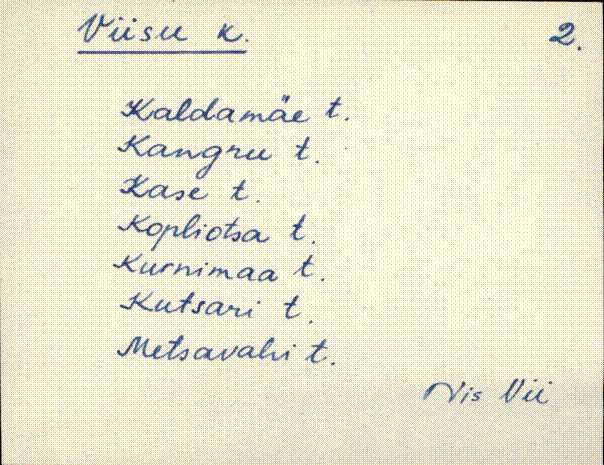 Viisu k. 2.
Kaldamäe t.
Kangru t.
Kase t.
Kopliotsa t.
Kurnimaa t.
Kutsari t.
Metsavahi t.
Vii